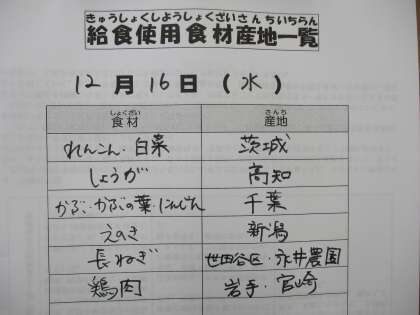 きゅうしょくしようしょくざいさんちいちらん
給食使用食材産地一覧
12月16日(水)
しょくざい さんち
食材 産地
れんこん・白菜 茨城
しょうが 高知
かぶ・かぶの葉・にんじん 千葉
えのき 新潟
長ねぎ 世田谷区・永井農園
鶏肉 岩手・宮崎